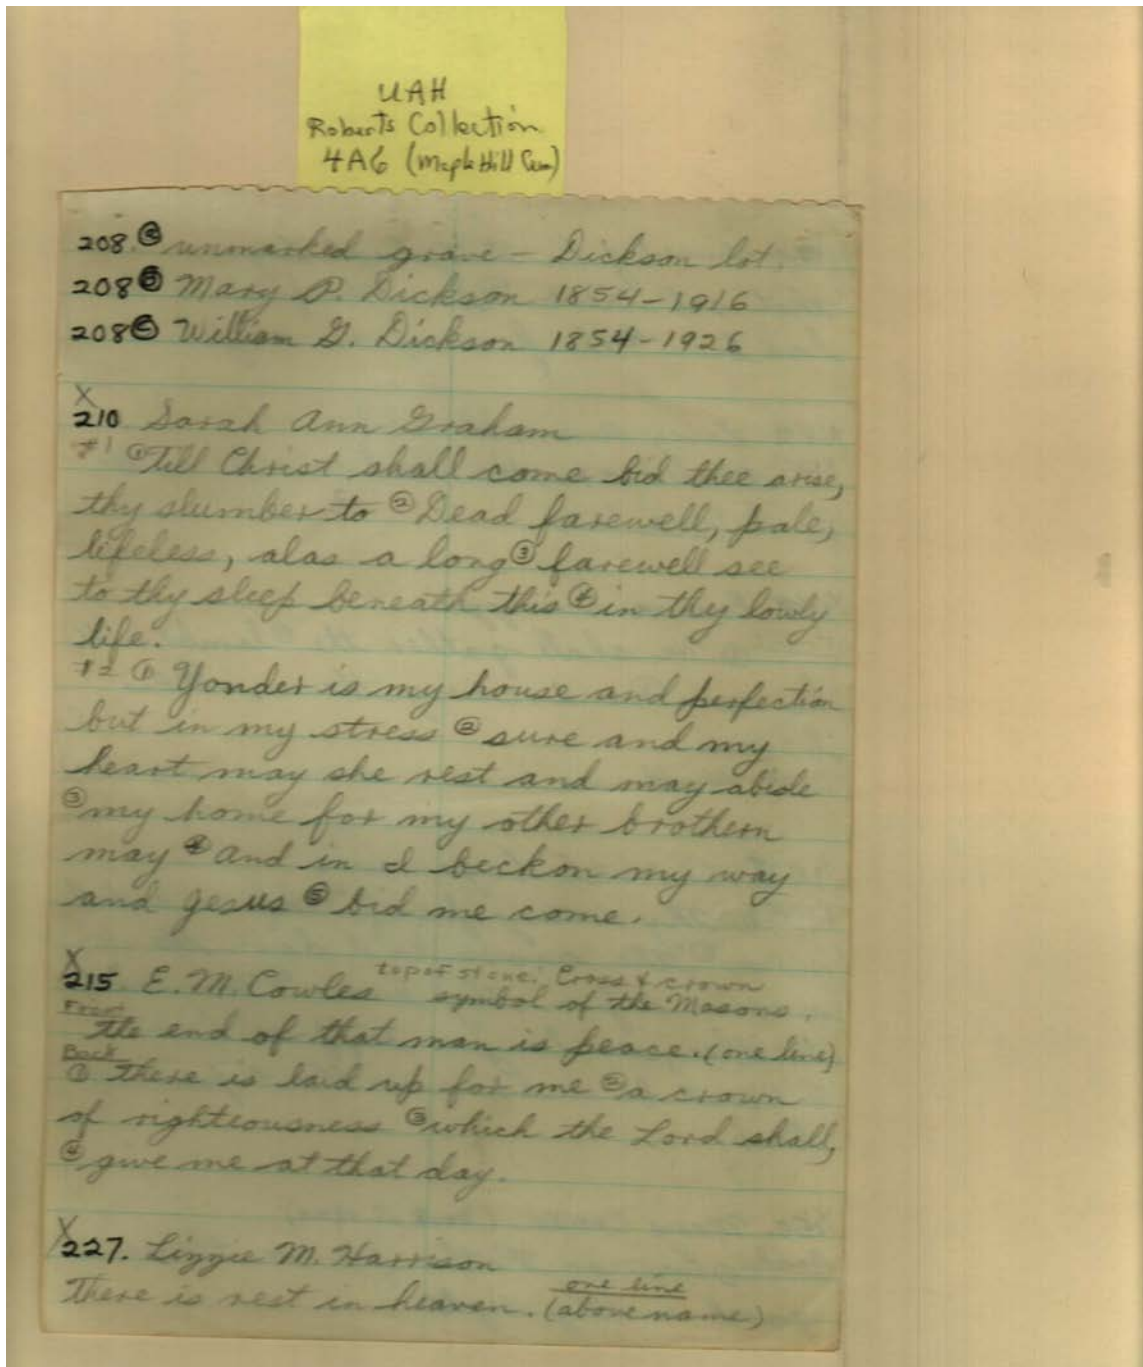 UAH
Roberts Collection
4A6 (Maple Hill Cem)
208. Ⓐ unmarked grave – Dickson lot.
208 Ⓑ Mary P. Dickson 1854–1916
208 Ⓒ William G. Dickson 1854–1926
X
210 Sarah Ann Graham
#1 ① Till Christ shall come bid thee arise,
thy slumber to ② Dead farewell, pale,
lifeless, alas a long ③ farewell see
to thy sleep beneath this ④ in thy lowly
life.
#2 ① Yonder is my house and perfection
but in my stress ② sure and my
heart may she rest and may abide
③ my home for my other brothern
may ④ and in I beckon my way
and Jesus ⑤ bid me come.
X
215 E. M. Cowles top of stone. Cross & crown
symbol of the Masons.
Front
the end of that man is peace. (one line)
Back
① There is laid up for me ② a crown
of righteousness ③ which the Lord shall,
④ give me at that day.
X
227. Lizzie M. Harrison
There is rest in heaven. one line
(above name)